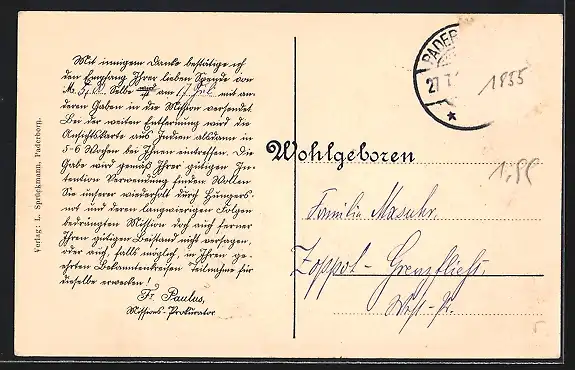 Mit innigem Danke bestätige ich
den Empfang Ihrer lieben Spende von
M. Selbe am 17 Juli mit an-
deren Gaben in die Mission versendet.
Bei der weiten Entfernung wird die
Ansichtskarte aus Indien alsdann in
5-6 Wochen bei Ihnen eintreffen. Die
Gabe wird gemäß Ihrer gütigen In-
tention Verwendung finden. Wollen
Sie unserer wiederholt durch Hungers-
not und deren langwierigen Folgen
bedrängten Mission doch auch ferner
Ihren gütigen Beistand nicht versagen,
oder auch, falls möglich, in Ihren ge-
ehrten Bekanntenkreisen Teilnahme für
dieselbe erwecken!
Fr. Paulus,
Missions-Prokurator
Verlag: L. Sprückmann, Paderborn.
PADER
27.7.
1835
Wohlgeboren
Familie Masuhr.
Zoppot - Grenzfließ.
West-Pr.